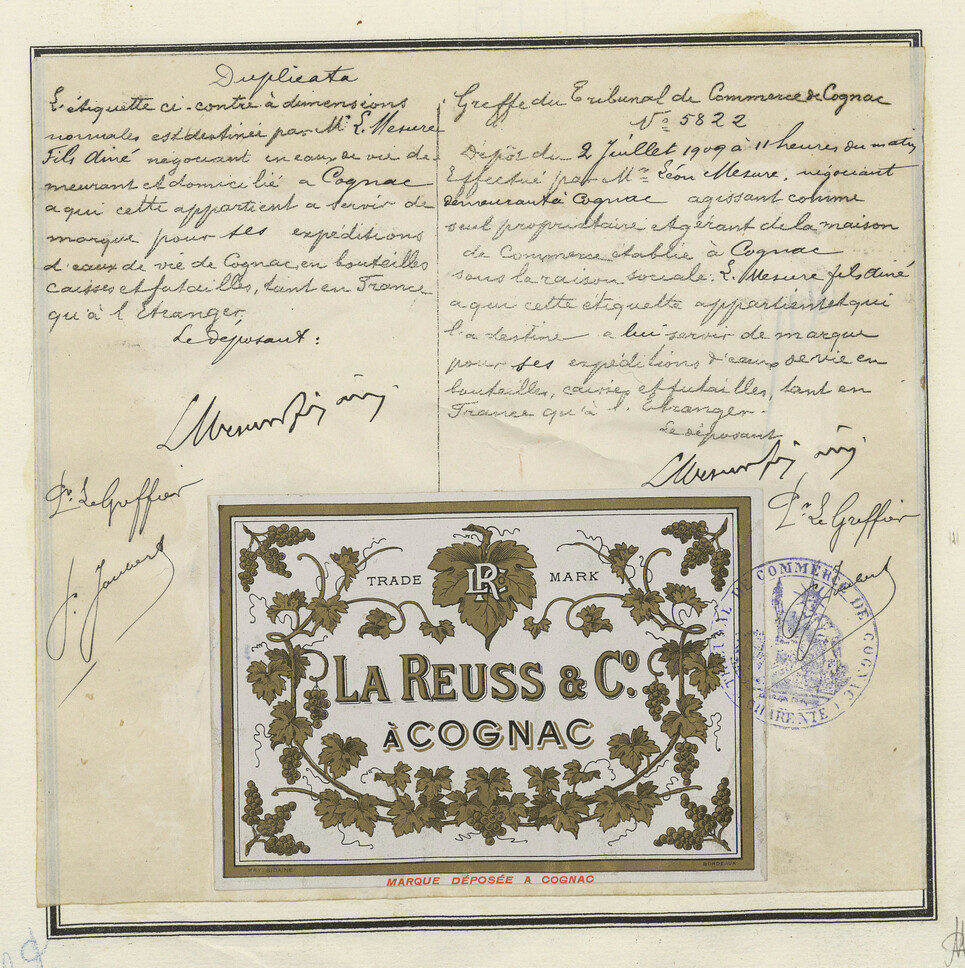 Duplicata
L'étiquette ci-contre à dimensions
normales est destinée par Mr L. Mesure
Fils ainé négociant en eaux de vie de-
meurant et domicilié a Cognac
a qui cette appartient a servir de
marque pour ses expéditions
d'eaux de vie de Cognac, en bouteilles
caisses et futailles, tant en France
qu'à l'Etranger.
Le déposant:
L Mesure fils ainé
Pr. Le Greffier
Greffe du Tribunal de Commerce de Cognac
No 5822
Dépôt du 2 Juillet 1909 à 11 heures du matin
Effectué par Mr Léon Mesure, négociant
demeurant à Cognac agissant comme
seul propriétaire et gérant de la maison
de Commerce établie à Cognac
sous la raison sociale: L. Mesure fils ainé
a qui cette étiquette appartient et qui
l'a destine a lui servir de marque
pour ses expéditions d'eaux de vie en
bouteilles, caisses et futailles, tant en
France qu'à l'Etranger-
Le déposant
L Mesure fils ainé
Pr Le Greffier
TRIBUNAL DE COMMERCE DE COGNAC
CHARENTE
TRADE LR MARK
LA REUSS & Co.
À COGNAC
BORDEAUX
MARQUE DÉPOSÉE A COGNAC